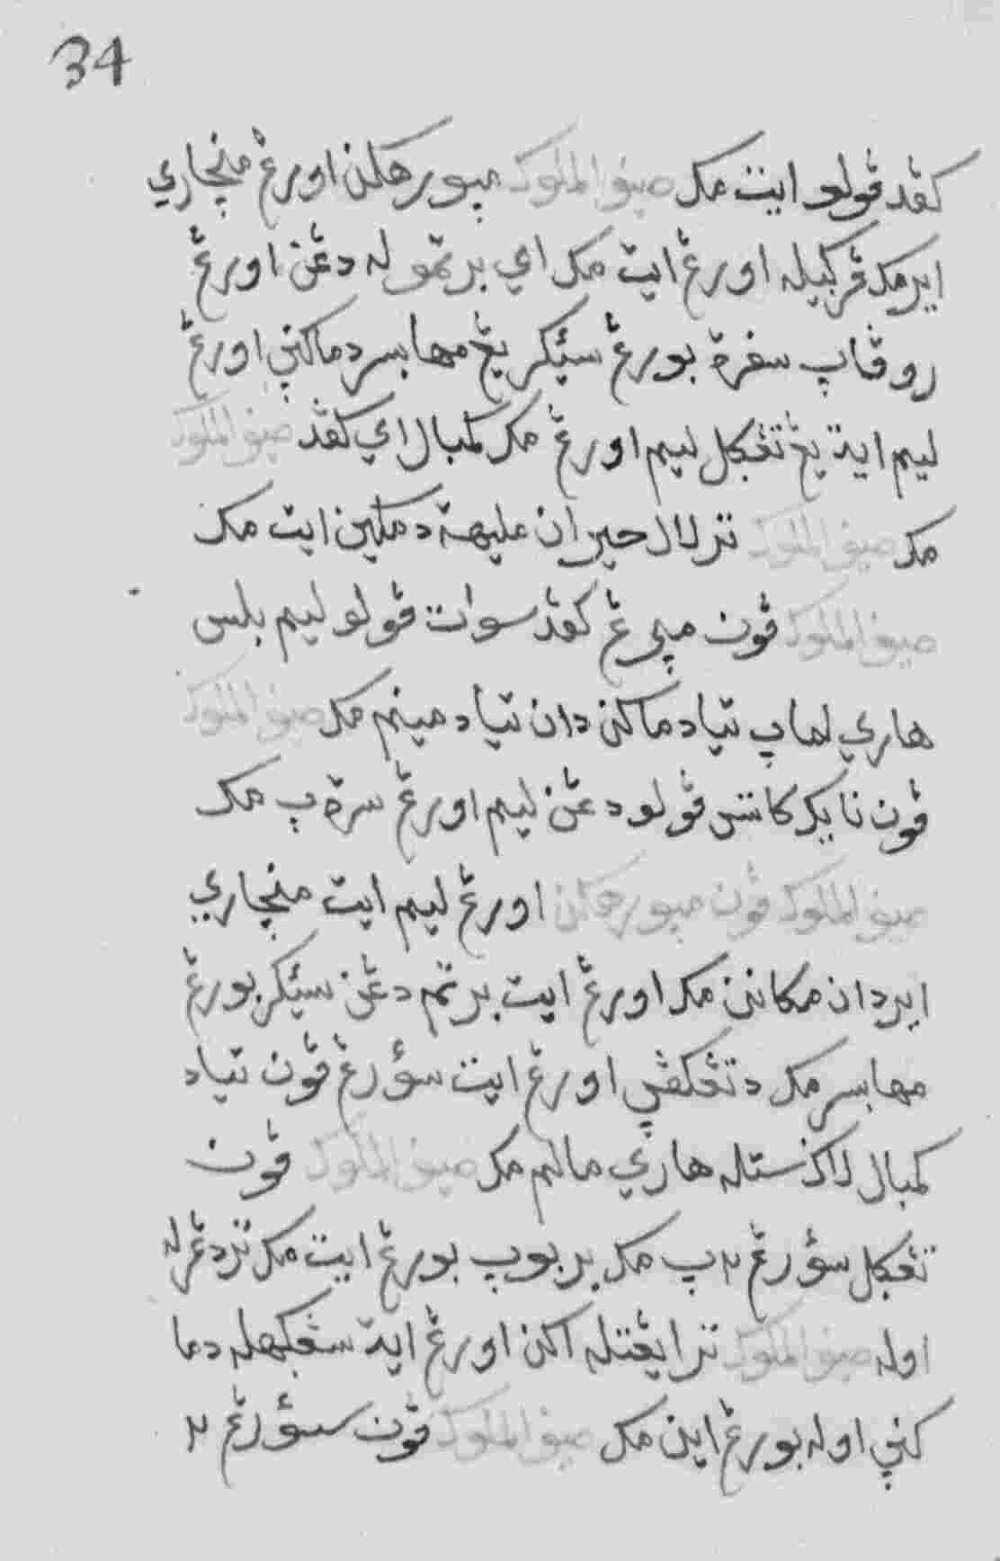 34
كڤد ڤولو ايت مك صيف الملوك مپورهكن اورڠ منچاري
اير مك ڤرݢيله اورڠ ايت مك اي برتمو له دڠن اورڠ
روڤاپ سفرة بورڠ سيئكر يڠ مها بسر دماكنڽ اورڠ
ليم ايت يڠ تڠݢل ليم اورڠ مك كمبال اي كڤد صيف الملوك
مك صيف الملوك ترلال حيران مليهت دمكين ايت مك
صيف الملوك ڤون مپرڠ كڤد سوات ڤولو ليم بلس
هاري لماپ تياد ماكن دان تياد مينم مك صيف الملوك
ڤون نايك كاتس ڤولو دڠن ليم اورڠ سرتاپ مك
صيف الملوك ڤون مپورهكن اورڠ ليم ايت منچاري
اير دان مكانن مك اورڠ ايت برتم دڠن سيئكر بورڠ
مها بسر مك دتڠكڤڽ اورڠ ايت سؤرڠ ڤون تياد
كمبال هاري مالم مك صيف الملوك ڤون
تڠݢل سؤرڠ٢ پ مك بربوپ بورڠ ايت مك تردڠرله
اوله صيف الملوك اورڠ ايت دما
كنڽ اوله بورڠ اين مك صيف الملوك ڤون سؤرڠ ٢